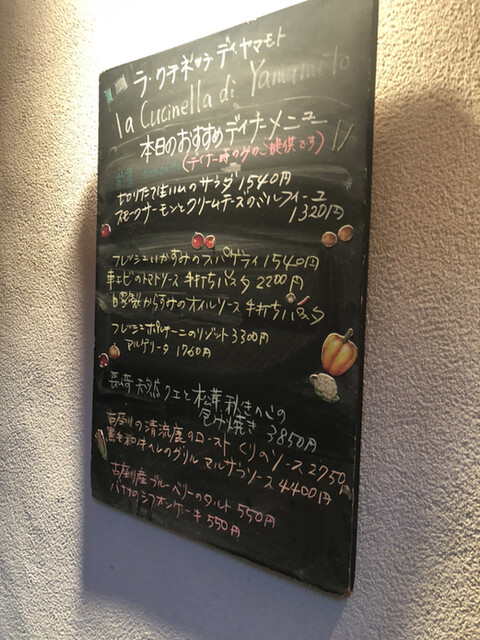 ラ・クチネッラ ディ ヤマモト
la Cucinella di Yamamoto
本日のおすすめディナーメニュー
(ディナー時のみのご提供です)
前菜
切りたて生ハムのサラダ 1540円
スモークサーモンとクリームチーズのミルフィーユ
1320円
フレッシュいかすみのスパゲティ 1540円
車エビのトマトソース 手打ちパスタ 2200円
自家製からすみのオイルソース 手打ちパスタ
フレッシュポルチーニのリゾット 3300円
マルゲリータ 1760円
長崎天然クエと松茸、秋きのこの
包み焼き 3850円
古座川の清流鹿のロースト くりのソース 2750
黒毛和牛ヘレのグリル マルサラソース 4400円
古座川産ブルーベリーのタルト 550円
バナナのシフォンケーキ 550円